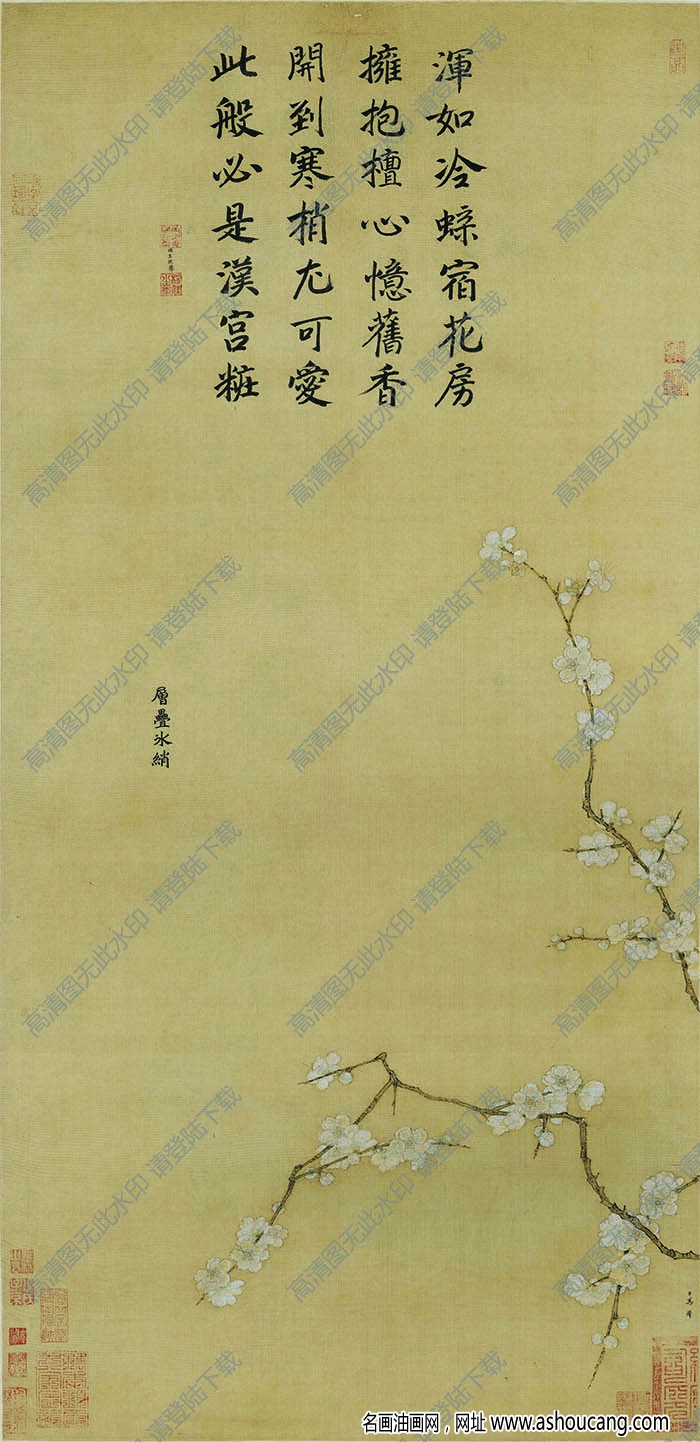 渾如冷蝶宿花房
擁抱檀心憶舊香
開到寒梢尤可愛
此般必是漢宮粧
層疊冰綃
高清图无此水印 请登陆下载
名画油画网，网址 www.ashoucang.com